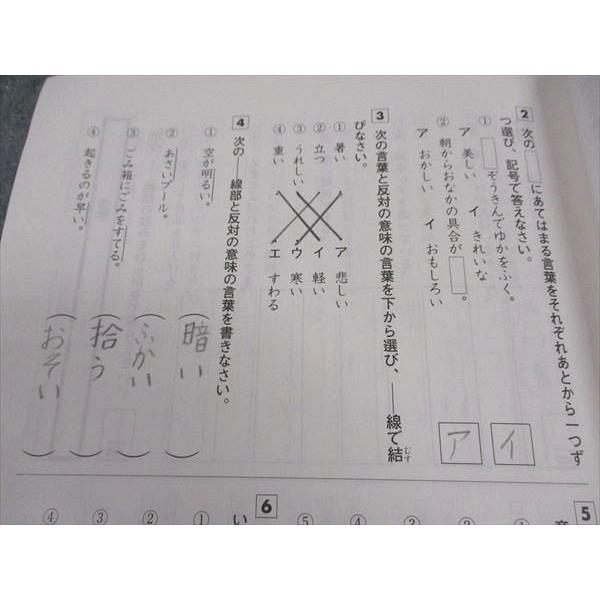 2 次の□にあてはまる言葉をそれぞれあとから一つず
つ選び、記号で答えなさい。
① □ぞうきんでゆかをふく。
ア 美しい イ きれいな
イ
② 朝からおなかの具合が□。
ア おかしい イ おもしろい
ア
3 次の言葉と反対の意味の言葉を下から選び、――線で結
むす
びなさい。
① 暑い ア 悲しい
② 立つ イ 軽い
③ うれしい ウ 寒い
④ 重い エ すわる
4 次の――線部と反対の意味の言葉を書きなさい。
① 空が明るい。 (暗い)
② あさいプール。 (ふかい)
③ ごみ箱にごみをすてる。 (拾う)
④ 起きるのが早い。 (おそい)
5
①
②
③
④
⑤
6
い
①
②
③
④